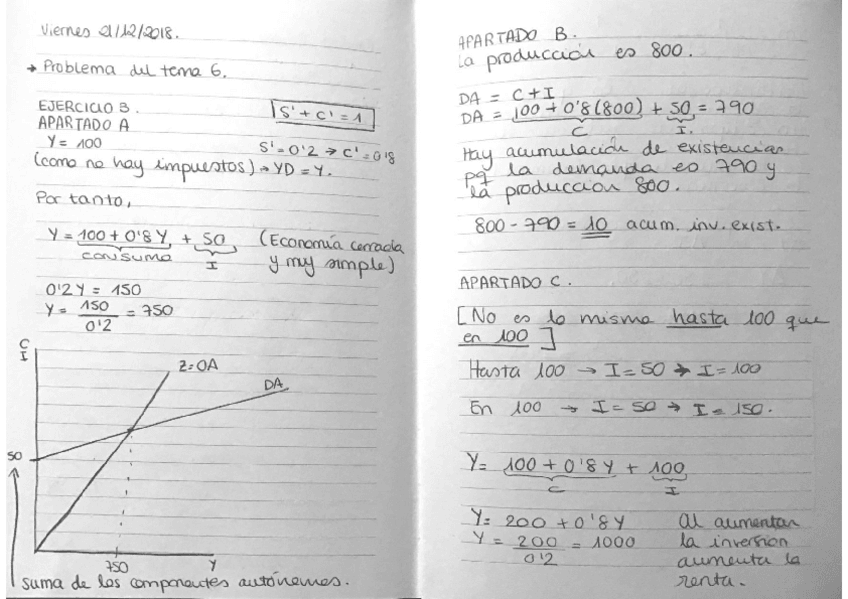 Viernes 21/12/2018.
→ Problema del tema 6.
EJERCICIO 3.
S' + C' = 1
APARTADO A
Y = 100
S' = 0'2 → C' = 0'8
(como no hay impuestos) → YD = Y.
Por tanto,
Y = 100 + 0'8 Y + 50 (Economía cerrada
consumo I y muy simple)
0'2 Y = 150
Y = 150 / 0'2 = 750
C
I
Z=OA
DA
50
750
Y
suma de los componentes autónomos.
APARTADO B.
La producción es 800.
DA = C + I
DA = 100 + 0'8 (800) + 50 = 790
C I.
Hay acumulación de existencias
pq la demanda es 790 y
la produccion 800.
800 - 790 = 10 acum. inv. exist.
APARTADO C.
[No es lo mismo hasta 100 que
en 100]
Hasta 100 → I = 50 → I = 100
En 100 → I = 50 → I = 150.
Y = 100 + 0'8 Y + 100
C I
Y = 200 + 0'8 Y Al aumentar
Y = 200 / 0'2 = 1000 la inversion
aumenta la
renta.